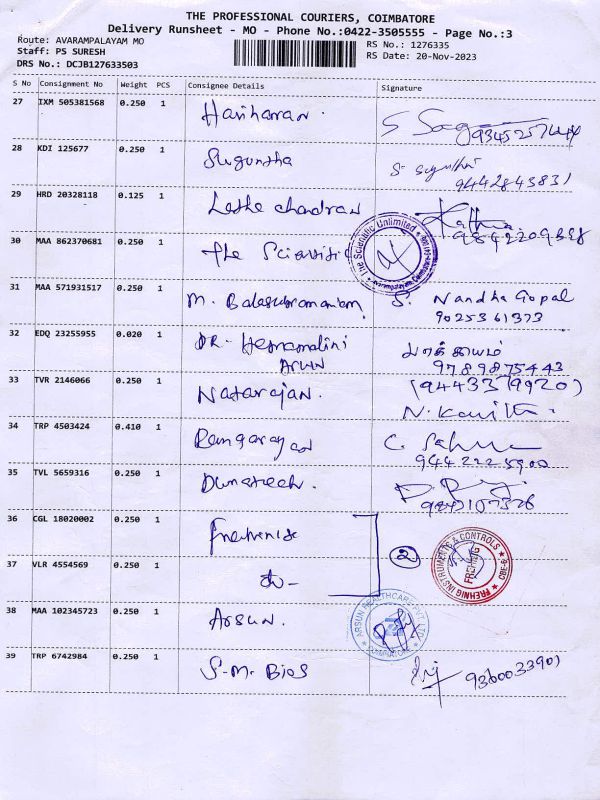 THE PROFESSIONAL COURIERS, COIMBATORE
Delivery Runsheet - MO - Phone No.:0422-3505555 - Page No.:3
Route: AVARAMPALAYAM MO
Staff: PS SURESH
DRS No.: DCJB127633503
RS No.: 1276335
RS Date: 20-Nov-2023
S No Consignment No Weight PCS Consignee Details Signature
27 IXM 505381568 0.250 1 Hariharan.
28 KDI 125677 0.250 1 Suguntha
9442843831
29 HRD 20328118 0.125 1 chandran
30 MAA 862370681 0.250 1 The
The Scientific Unlimited
31 MAA 571931517 0.250 1 M. Balasubramaniam S. Nandha Gopal
9025361373
32 EDQ 23255955 0.020 1 DR. Hemamalini
ARUN
9789875443
33 TVR 2146066 0.250 1 Natarajan. (9443379920)
N. Kavitha
34 TRP 4503424 0.410 1
35 TVL 5659316 0.250 1
36 CGL 18020002 0.250 1
2
FREHNIG INSTRUMENTS & CONTROLS
FREHNIG
CBE-6
37 VLR 4554569 0.250 1
38 MAA 102345723 0.250 1 Arsun.
ARSUN HEALTHCARE PVT. LTD.
COIMBATORE
39 TRP 6742984 0.250 1 S.M. Bios 9360033901